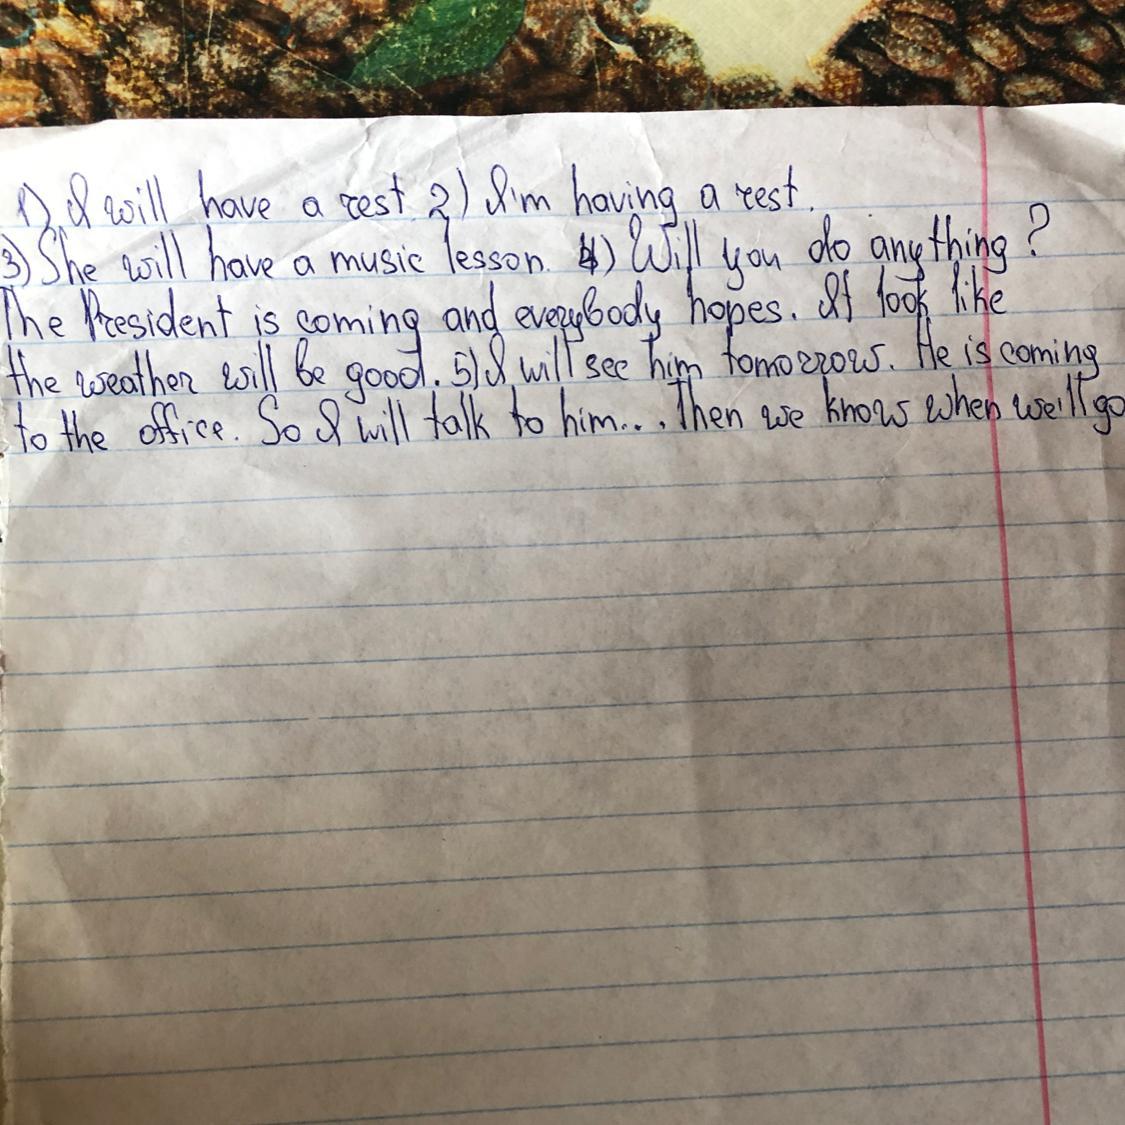 1) I will have a rest. 2) I'm having a rest.
3) She will have a music lesson. 4) Will you do anything?
The President is coming and everybody hopes. It look like
the weather will be good. 5) I will see him tomorrow. He is coming
to the office. So I will talk to him... Then we know when we'll go